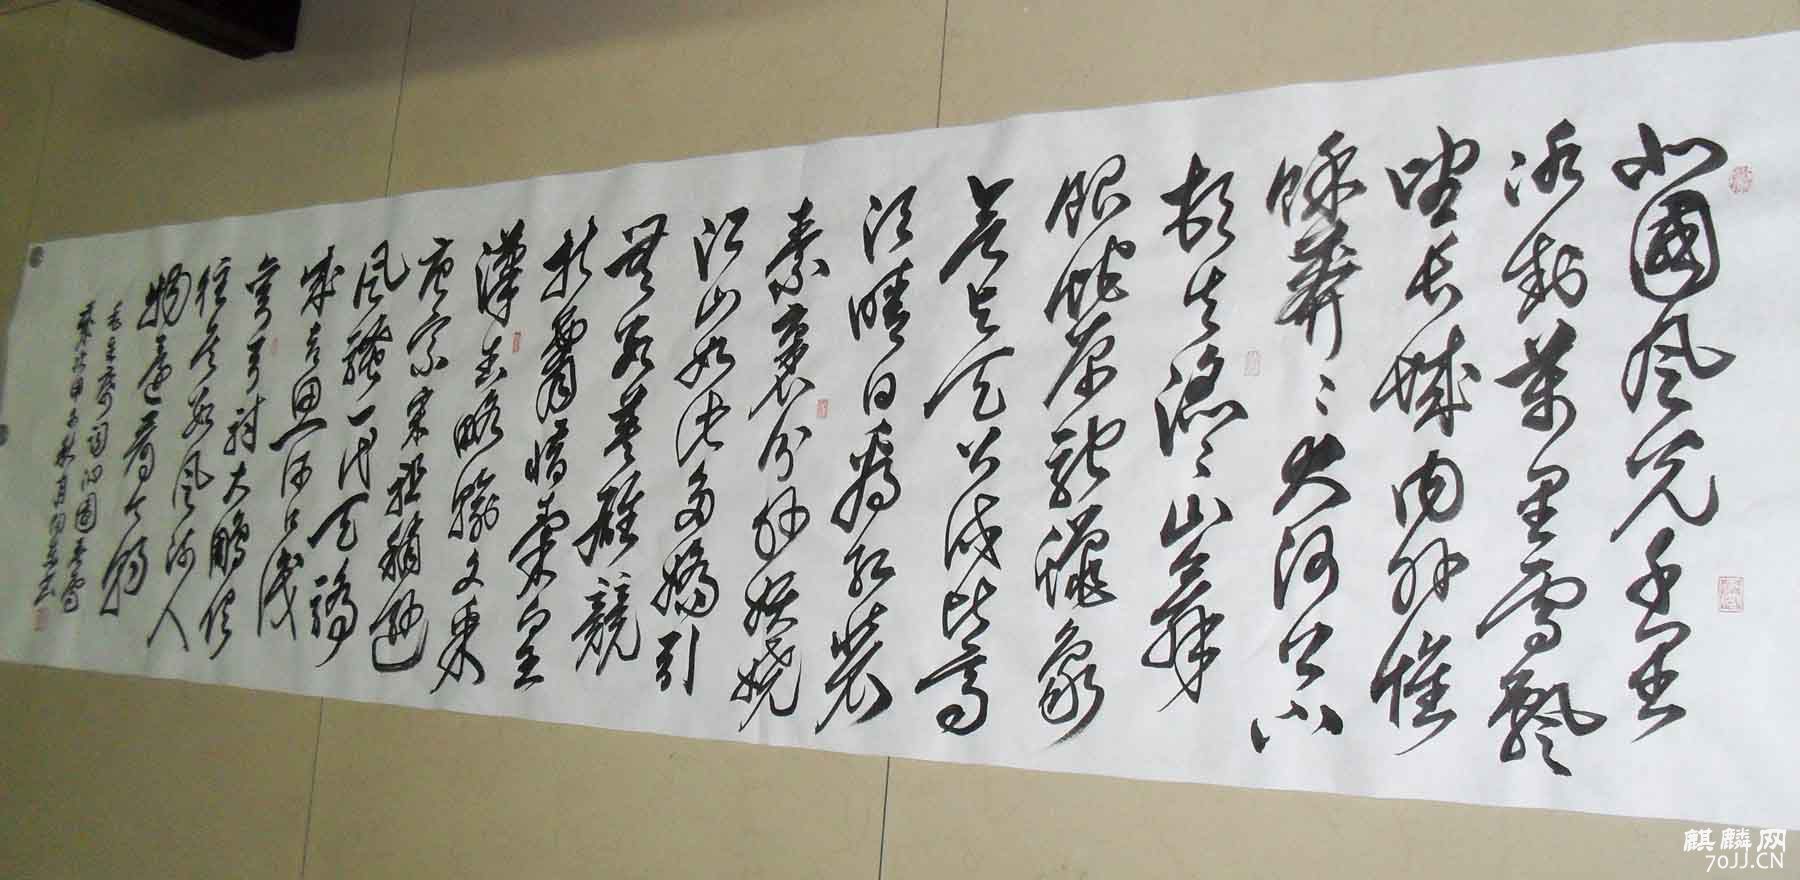 北國風光千里
冰封萬里雪飄
望長城内外惟
餘莽〻大河上下
頓失滔〻山舞
銀蛇原馳蠟象
欲与天公试比高
須晴日看紅裝
素裹分外妖嬈
江山如此多嬌引
無數英雄競
折腰惜秦皇
漢武略輸文采
唐宗宋祖稍遜
風騷一代天驕
成吉思汗只識
彎弓射大鵰俱
往矣數風流人
物還看今朝
毛主席詞沁園春雪
歲次甲午秋月
麒麟网
70JJ.CN